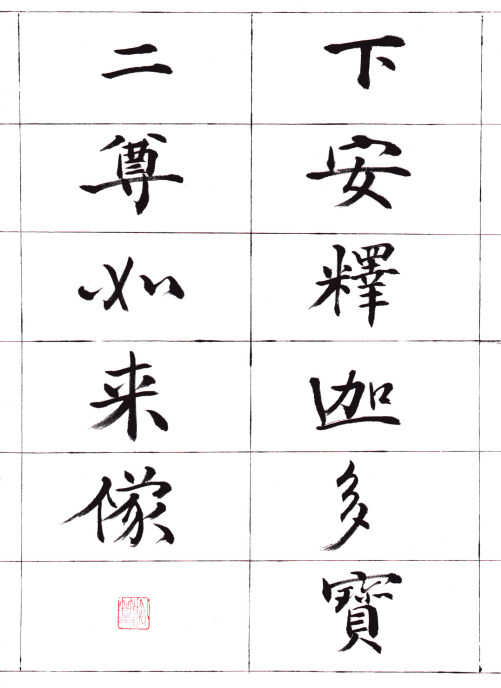 下安釋迦多寶
二尊如来像